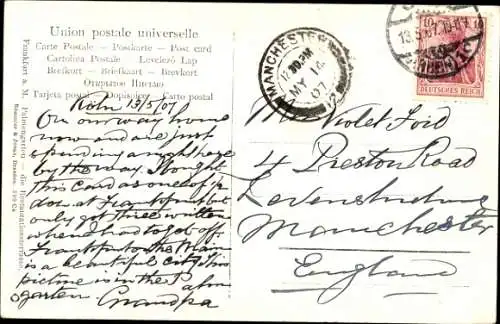 Union postale universelle
Carte Postale — Postkarte — Post card
Cartolina Postale — Levelező Lap
Brefkort — Briefkaart — Brevkort
Открытое Письмо
Tarjeta postal — Dopisnice — Carto postal
Frankfurt a. M. Palmengarten — die Restaurationsterrasse.
Köln 13/5/07
On our way home
now and are just
spending a night here
by the way. I bought
this card as one of ½
doz at Frankfurt but
only got three written
when I had to go off.
Frankfurt on the Main
is a beautiful city & this
picture is in the Palm
garten Grandpa
MANCHESTER
MY 14
07
13.5.07
10 10
DEUTSCHES REICH
Violet Ford
4 Preston Road
Levenshulme
Manchester
England